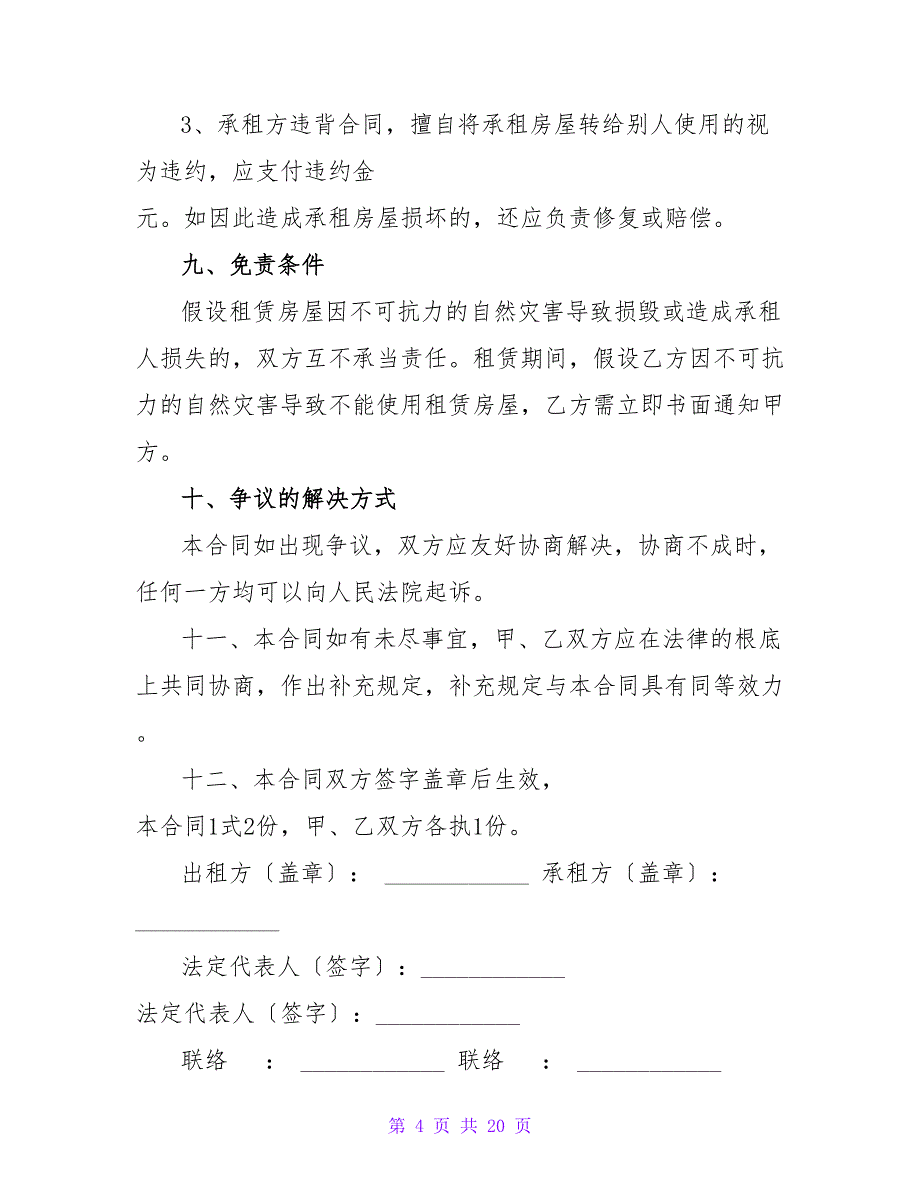 3、承租方违背合同，擅自将承租房屋转给别人使用的视
为违约，应支付违约金
元。如因此造成承租房屋损坏的，还应负责修复或赔偿。
九、免责条件
假设租赁房屋因不可抗力的自然灾害导致损毁或造成承租
人损失的，双方互不承当责任。租赁期间，假设乙方因不可抗
力的自然灾害导致不能使用租赁房屋，乙方需立即书面通知甲
方。
十、争议的解决方式
本合同如出现争议，双方应友好协商解决，协商不成时，
任何一方均可以向人民法院起诉。
十一、本合同如有未尽事宜，甲、乙双方应在法律的根底
上共同协商，作出补充规定，补充规定与本合同具有同等效力
。
十二、本合同双方签字盖章后生效，
本合同1式2份，甲、乙双方各执1份。
出租方〔盖章〕： ____________ 承租方〔盖章〕：
____________
法定代表人〔签字〕：____________
法定代表人〔签字〕：____________
联络 ： ____________ 联络 ： ____________
第 4 页 共 20 页